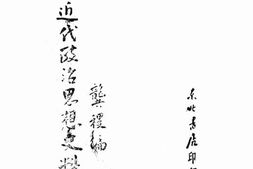 近代政治思想史料
龔禮編
东北书店印行